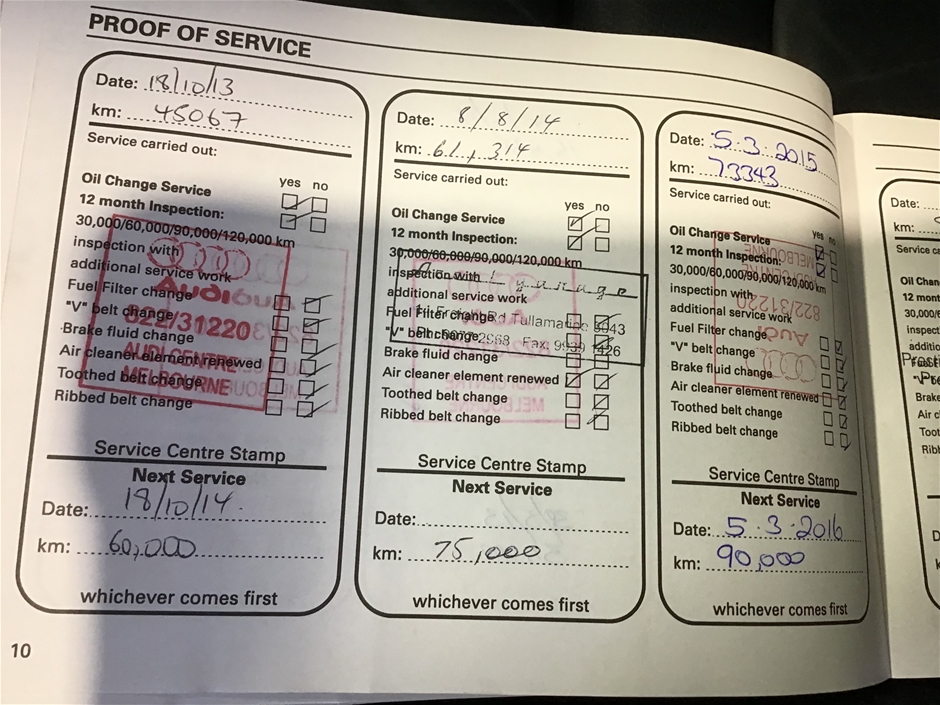 PROOF OF SERVICE
Date: 18/10/13
km: 45067
Service carried out:
yes no
Oil Change Service
12 month Inspection:
30,000/60,000/90,000/120,000 km
inspection with
additional service work
Fuel Filter change
"V" belt change
Brake fluid change
Air cleaner element renewed
Toothed belt change
Ribbed belt change
Audi
822/31220
AUDI CENTRE
MELBOURNE
Service Centre Stamp
Next Service
Date: 18/10/14
km: 60,000
whichever comes first
Date: 8/8/14
km: 61,314
Service carried out:
yes no
Oil Change Service
12 month Inspection:
30,000/60,000/90,000/120,000 km
inspection with
additional service work
Fuel Filter change
"V" belt change
Brake fluid change
Air cleaner element renewed
Toothed belt change
Ribbed belt change
Rd Tullamarine 3043
Fax
Service Centre Stamp
Next Service
Date:
km: 75,000
whichever comes first
Date: 5.3.2015
km: 73343
Service carried out:
yes no
Oil Change Service
12 month Inspection:
30,000/60,000/90,000/120,000 km
inspection with
additional service work
Fuel Filter change
"V" belt change
Brake fluid change
Air cleaner element renewed
Toothed belt change
Ribbed belt change
MELBOURNE
AUDI CENTRE
822/31220
Audi
Service Centre Stamp
Next Service
Date: 5.3.2016
km: 90,000
whichever comes first
Date:
km:
Service ca
Oil Chan
12 mont
30,000/
inspect
additio
"V" be
Brake
Air cl
Toot
Ribb
10